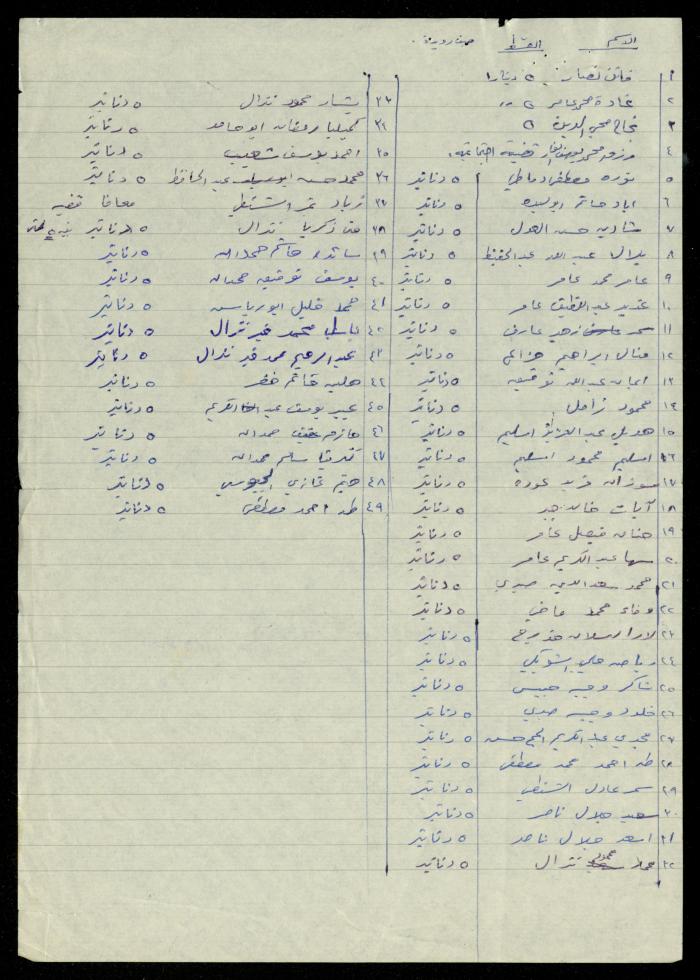 الاسم القسط
١ فاتن نصار ٥ دينار
٢ غادة محمد عامر ٥ ،،
٣ نجاح محي الدين ٥
٤ محمد قضية اجتماعية
٥ نوره مصطفى دماطي ٥ دنانير
٦ اياد حاتم ٥ دنانير
٧ شادي حسن ٥ دنانير
٨ بلال عبد الله عبد الحفيظ ٥ دنانير
٩ عامر محمد عامر ٥ دنانير
١٠ غدير عبد اللطيف عامر ٥ دنانير
١١ سمر زهير عارف ٥ دنانير
١٢ منال ابراهيم ٥ دنانير
١٣ ايمان عبد الله توفيق ٥ دنانير
١٤ محمود زامل ٥ دنانير
١٥ هديل عبد العزيز اسليم ٥ دنانير
١٦ اسليم محمود اسليم ٥ دنانير
١٧ سوزان فريد عوده ٥ دنانير
١٨ آيات خالد جبر ٥ دنانير
١٩ حنان فيصل عامر ٥ دنانير
٢٠ سها عبد الكريم عامر ٥ دنانير
٢١ محمد سعد الدين صبري ٥ دنانير
٢٢ وفاء محمد ماضي ٥ دنانير
٢٣ لارا ارسلان ٥ دنانير
٢٤ رياض علي ٥ دنانير
٢٥ شاكر وجيه ٥ دنانير
٢٦ خلود وجيه صبري ٥ دنانير
٢٧ مجدي عبد الكريم الحج حسن ٥ دنانير
٢٨ طه احمد محمد مصطفى ٥ دنانير
٢٩ سمر عادل الشنطي ٥ دنانير
٣٠ سعيد جلال ناصر ٥ دنانير
٣١ اسعد جلال ناصر ٥ دنانير
٣٢ محمد محمود نزال ٥ دنانير
٣٣ بشار محمود نزال ٥ دنانير
٣٤ كميليا رمضان ابو حامد ٥ دنانير
٣٥ احمد يوسف شعيب ٥ دنانير
٣٦ محمد حسن عبد الحافظ ٥ دنانير
٣٧ زياد الشنطي معافا
٣٨ زكريا نزال ٥ دنانير
٣٩ هاشم حمدان ٥ دنانير
٤٠ يوسف توفيق حمدان ٥ دنانير
٤١ محمد خليل ابو رياس ٥ دنانير
٤٢ باسل محمد خير نزال ٥ دنانير
٤٣ عبد الرحيم محمد خير نزال ٥ دنانير
٤٤ خضر ٥ دنانير
٤٥ عبير يوسف عبد الكريم ٥ دنانير
٤٦ حازم عفيف حمدان ٥ دنانير
٤٧ سليم حمدان ٥ دنانير
٤٨ هيثم غازي الجيوسي ٥ دنانير
٤٩ طه احمد مصطفى ٥ دنانير